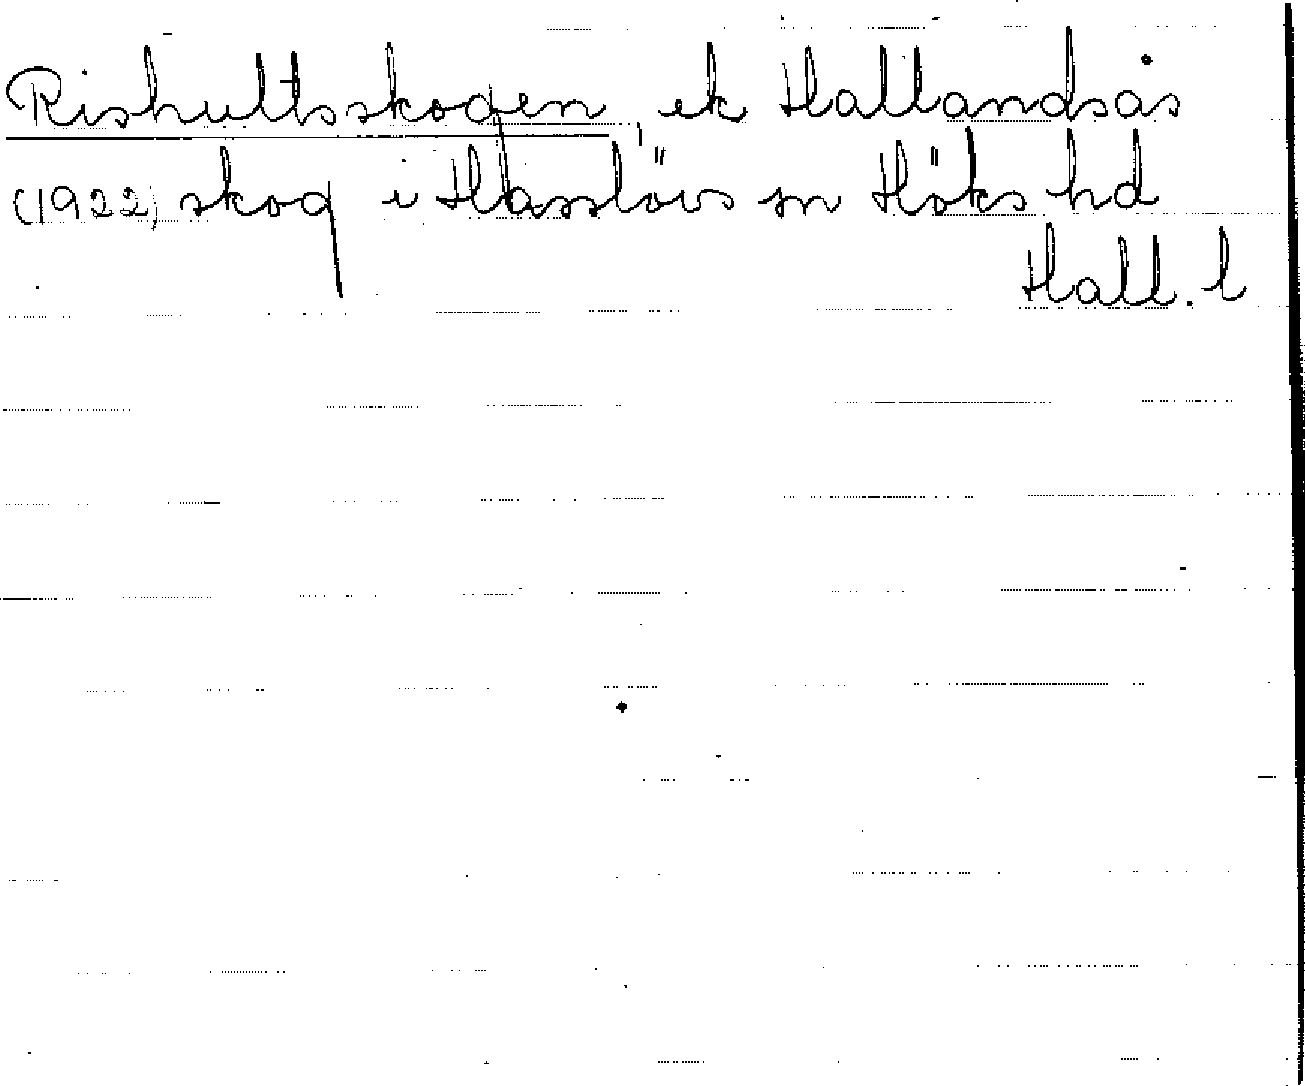 Rishultsskogen, ek Hallandsås
(1922) skog i Hasslövs sn Höks hd
Hall. l